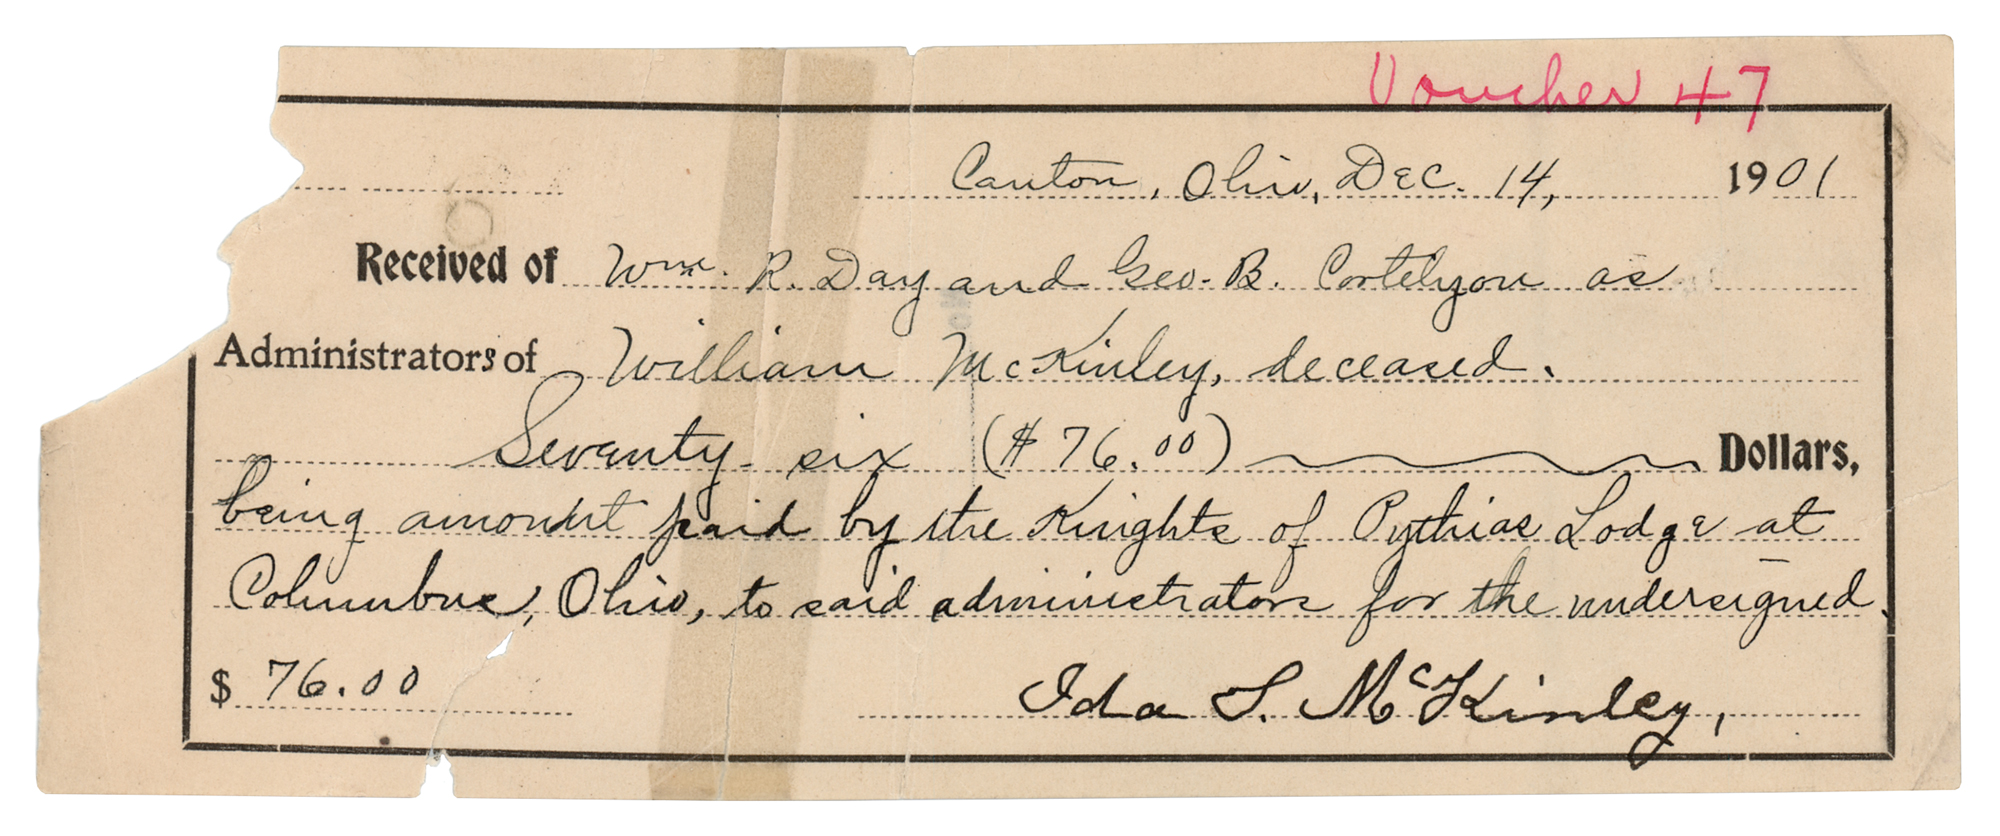 Voucher 47
Canton, Ohio, Dec. 14, 1901
Received of Wm. R. Day and Geo. B. Cortelyou as
Administrators of William McKinley, deceased.
Seventy six ($76.00) Dollars,
being amount paid by the Knights of Pythias Lodge at
Columbus, Ohio, to said administrators for the undersigned.
$ 76.00 Ida S. McKinley,